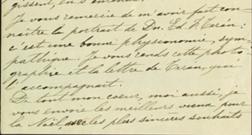 Je vous remercie de m'avoir fait con-
naître la portrait de Dr. Ed.
c'est une bonne physionomie, sym-
pathique. Je vous rends cette photo-
graphie et la lettre de qui
l'accompagnait.
De tout mon coeur, moi aussi, je
vous envoie les meilleurs voeux pour
la Noël, les plus sincères souhaits